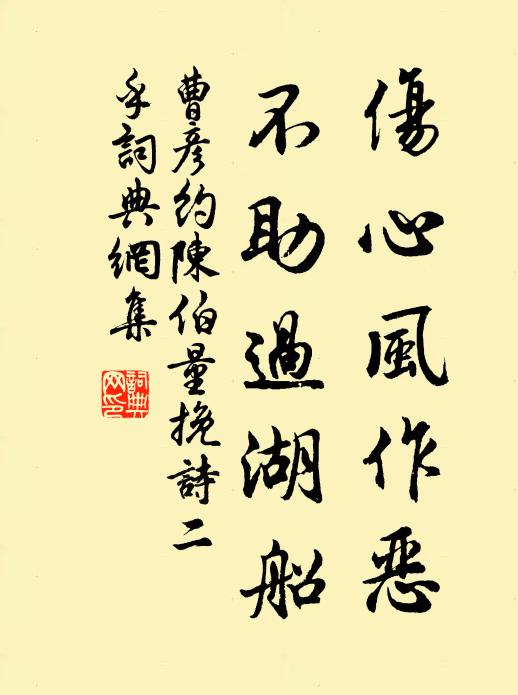 傷心風作惡
不助過湖船
曹彥約陳伯量挽詩二
手詞典網集
詞典
网印